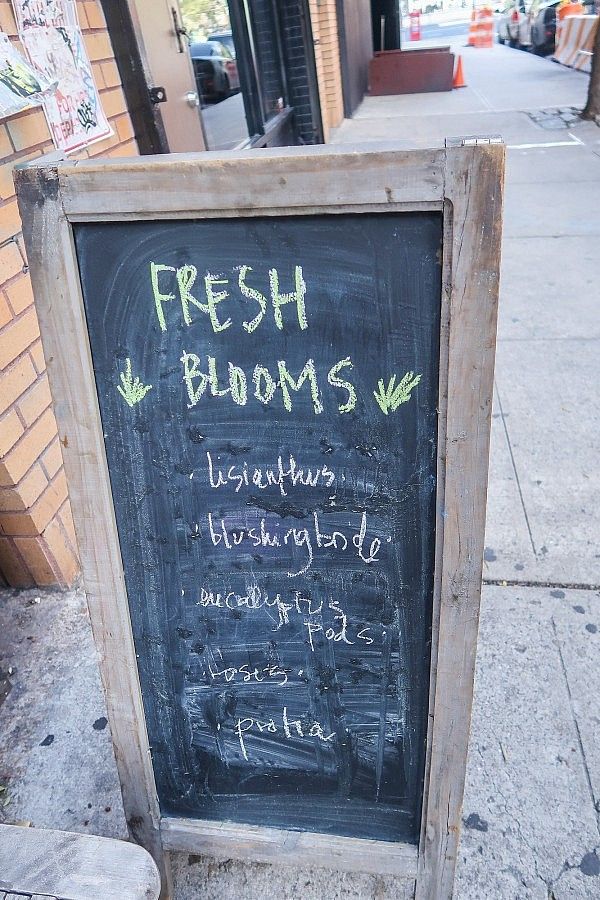 FRESH
BLOOMS
· lisianthus ·
· blushing bride ·
· eucalyptus
pods ·
· roses ·
· protia